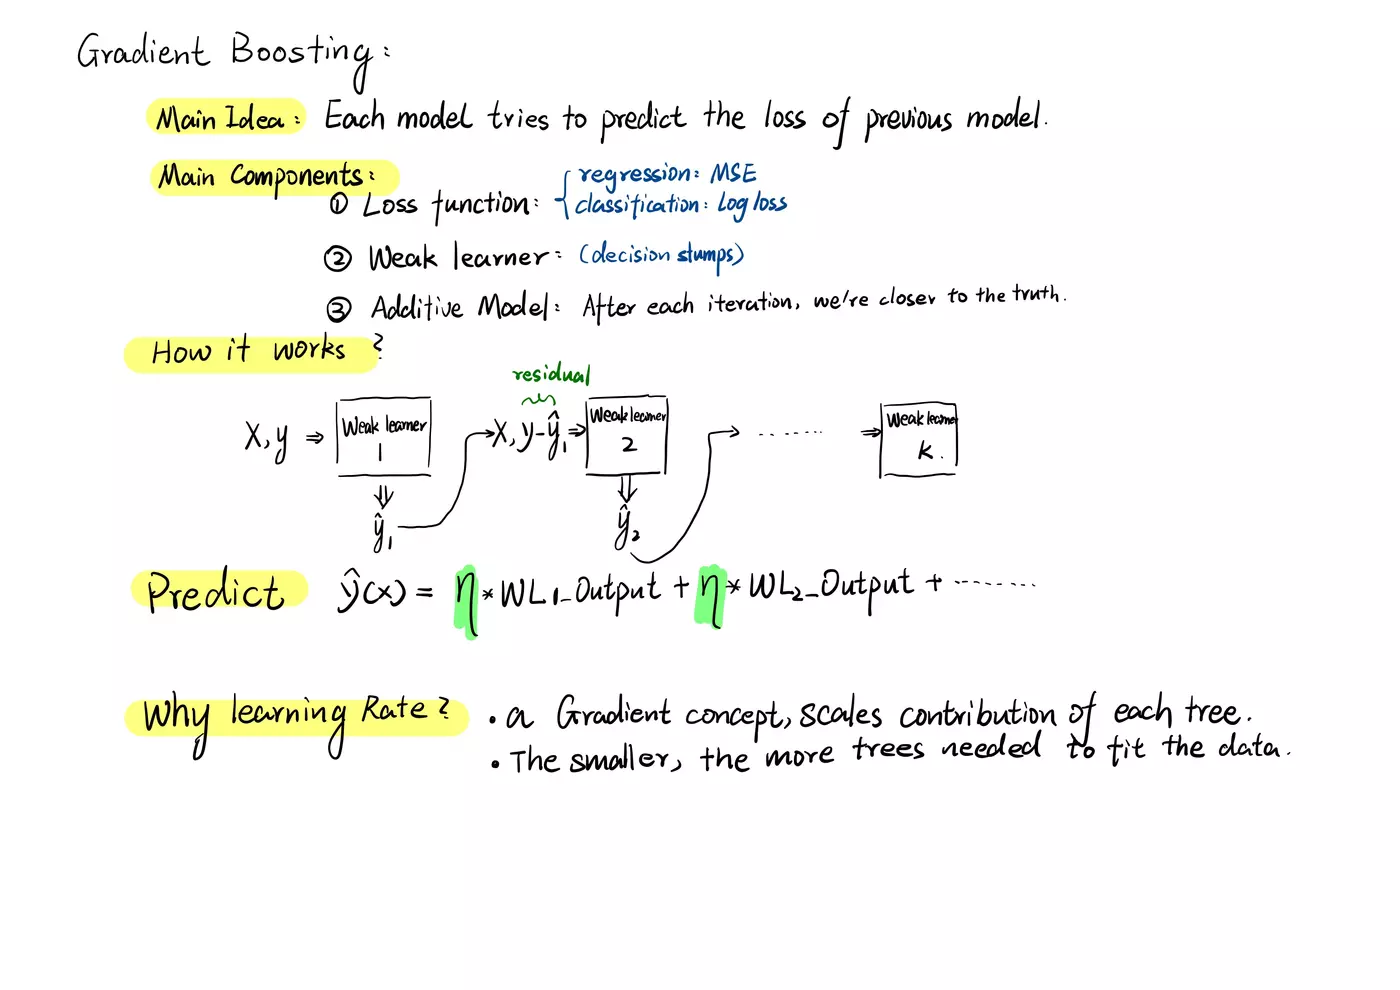 Gradient Boosting:
Main Idea: Each model tries to predict the loss of previous model.
Main Components:
① Loss function: { regression: MSE
classification: Log loss
② Weak learner: (decision stumps)
③ Additive Model: After each iteration, we're closer to the truth.
How it works?
residual
X, y ⇒ Weak learner 1 → X, y-ŷ₁ ⇒ Weak learner 2 → ...... ⇒ Weak learner k.
ŷ₁ ŷ₂
Predict ŷ(x) = η * WL1_Output + η * WL2_Output + .......
Why learning Rate? • a Gradient concept, scales contribution of each tree.
• The smaller, the more trees needed to fit the data.